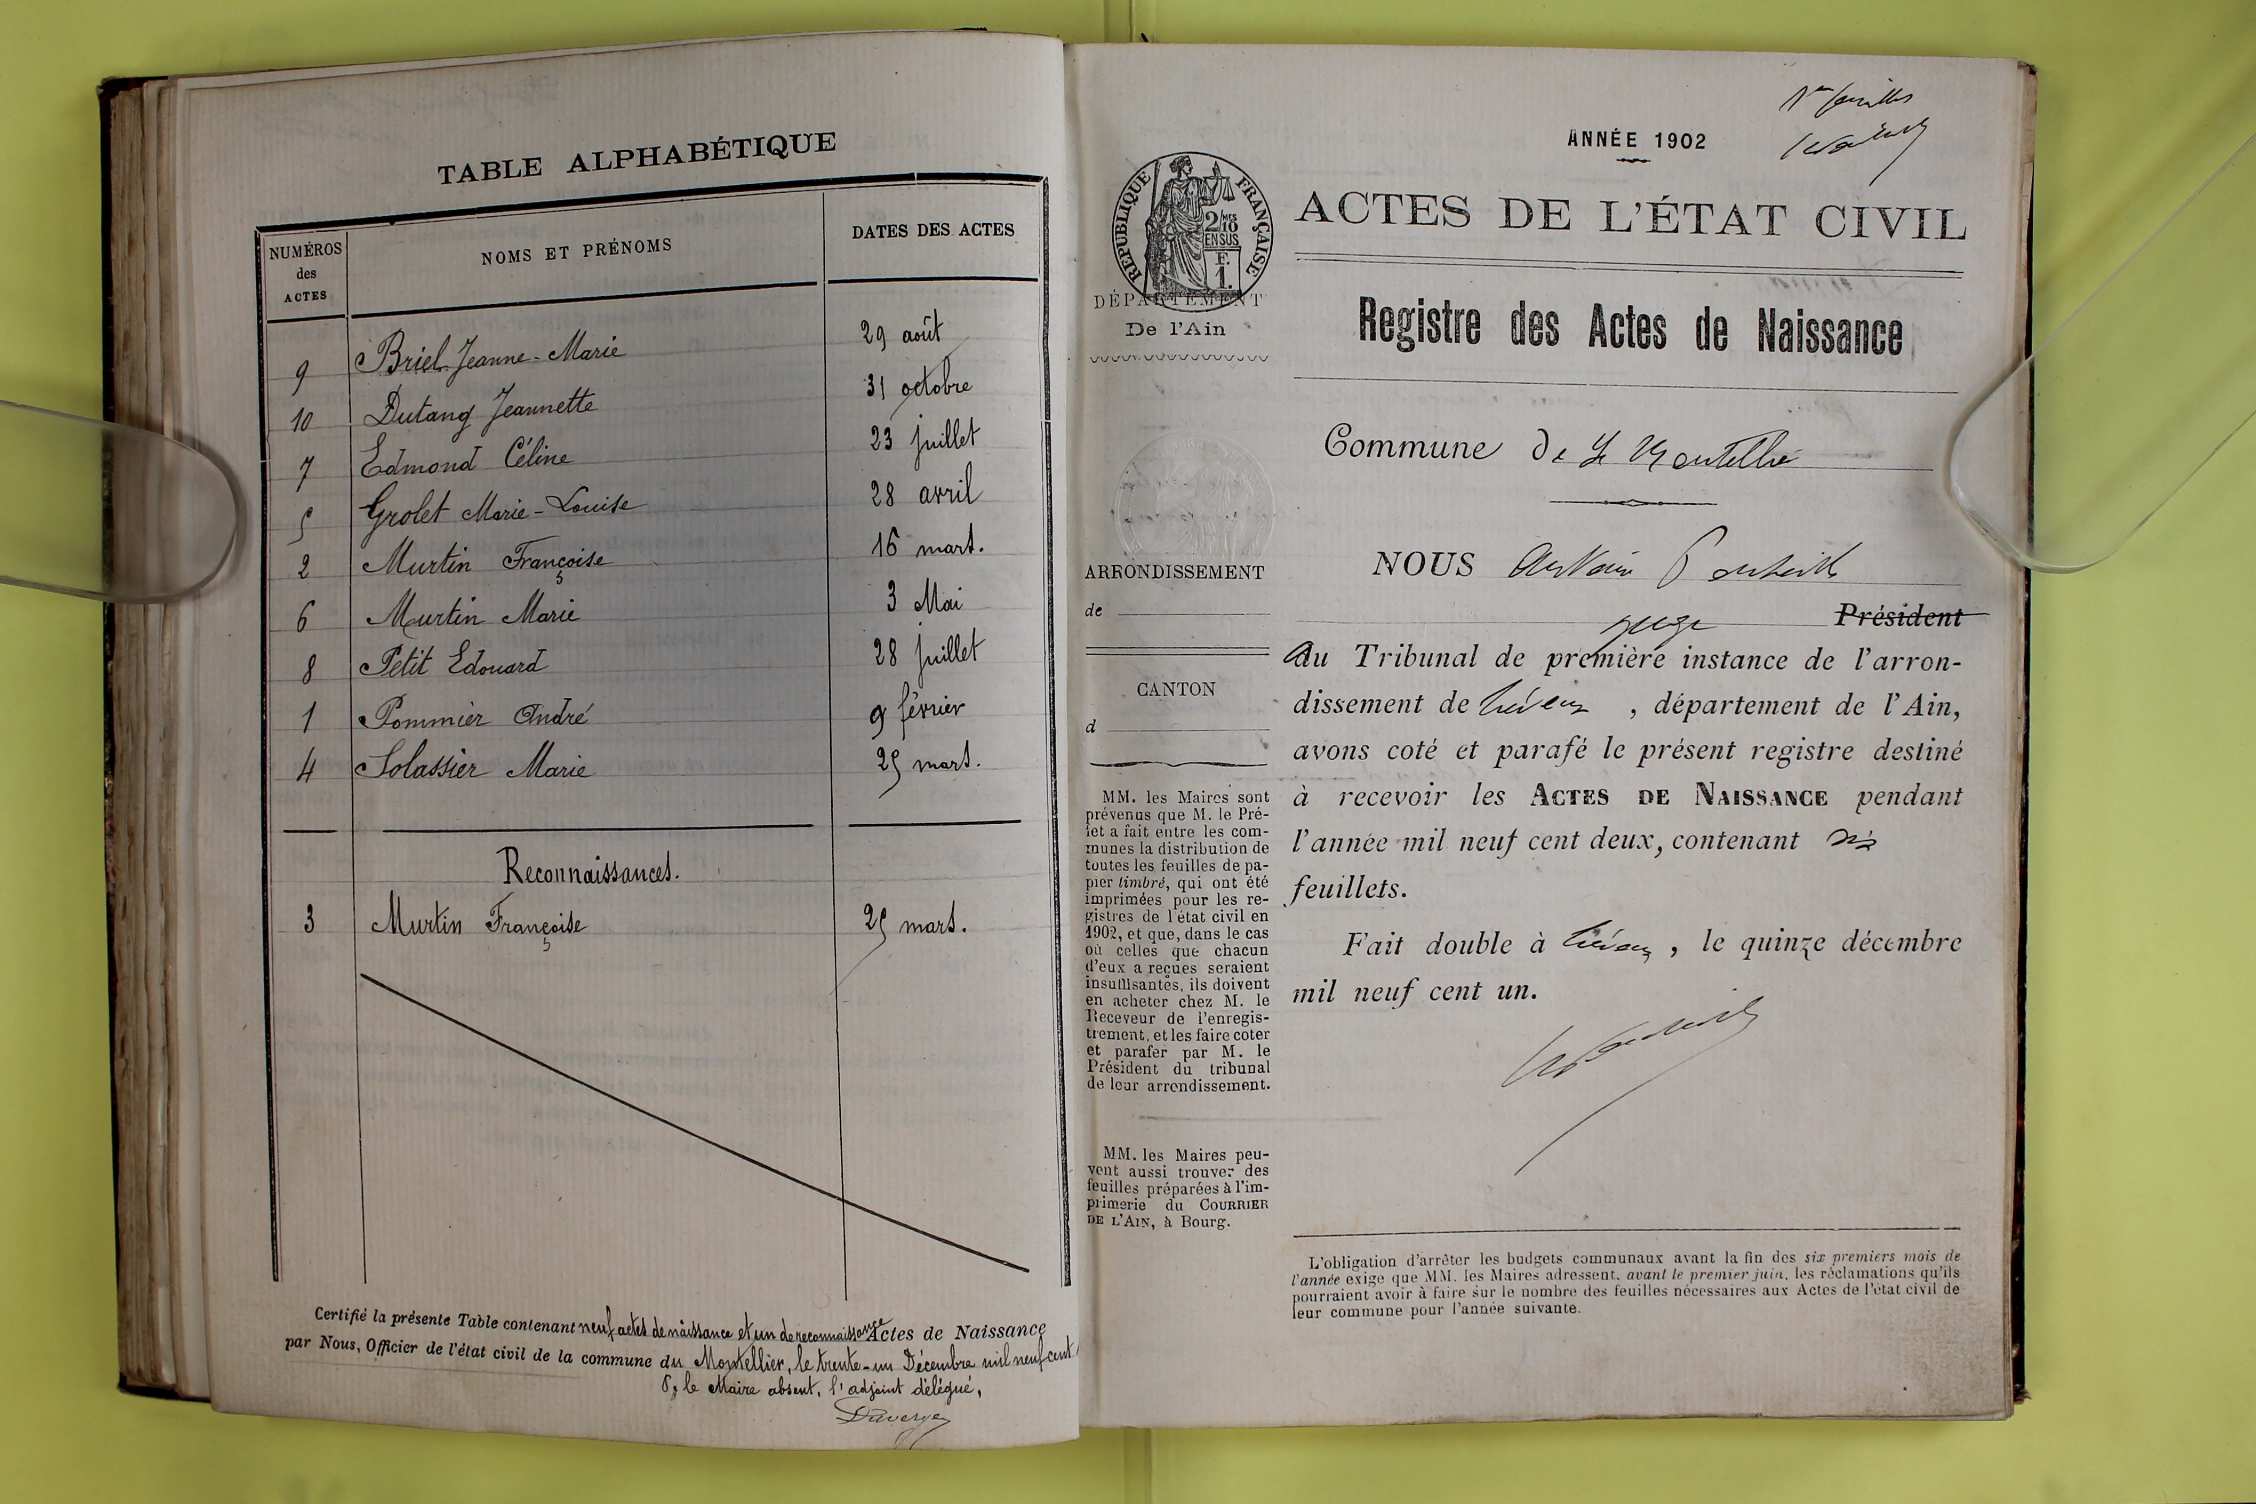 TABLE ALPHABÉTIQUE
NUMÉROS des ACTES NOMS ET PRÉNOMS DATES DES ACTES
9 Briel Jeanne-Marie 29 août
10 Dutang Jeannette 31 octobre
7 Edmond Céline 23 juillet
5 Grolet Marie-Louise 28 avril
2 Murtin Françoise 16 mars.
6 Murtin Marie 3 Mai
8 Petit Edouard 28 juillet
1 Pommier André 9 février
4 Solassier Marie 25 mars.
Reconnaissances.
3 Murtin Françoise 25 mars.
Certifié la présente Table contenant neuf actes de naissance et un de reconnaissance Actes de Naissance
par Nous, Officier de l'état civil de la commune du Montellier, le trente-un Décembre mil neuf cent
P. le Maire absent, l'adjoint délégué,
ANNÉE 1902
RÉPUBLIQUE FRANÇAISE
2/10 MES
EN SUS
F.
1.
ACTES DE L'ÉTAT CIVIL
DÉPARTEMENT
De l'Ain
Registre des Actes de Naissance
Commune de Le Montellier
ARRONDISSEMENT
de
CANTON
d
MM. les Maires sont
prévenus que M. le Pré-
fet a fait entre les com-
munes la distribution de
toutes les feuilles de pa-
pier timbré, qui ont été
imprimées pour les re-
gistres de l'état civil en
1902, et que, dans le cas
où celles que chacun
d'eux a reçues seraient
insuffisantes, ils doivent
en acheter chez M. le
Receveur de l'enregis-
trement, et les faire coter
et parafer par M. le
Président du tribunal
de leur arrondissement.
MM. les Maires peu-
vent aussi trouver des
feuilles préparées à l'im-
primerie du COURRIER
DE L'AIN, à Bourg.
NOUS
Président
juge
au Tribunal de première instance de l'arron-
dissement de Trévoux, département de l'Ain,
avons coté et parafé le présent registre destiné
à recevoir les ACTES DE NAISSANCE pendant
l'année mil neuf cent deux, contenant six
feuillets.
Fait double à Trévoux, le quinze décembre
mil neuf cent un.
L'obligation d'arrêter les budgets communaux avant la fin des six premiers mois de
l'année exige que MM. les Maires adressent, avant le premier juin, les réclamations qu'ils
pourraient avoir à faire sur le nombre des feuilles nécessaires aux Actes de l'état civil de
leur commune pour l'année suivante.